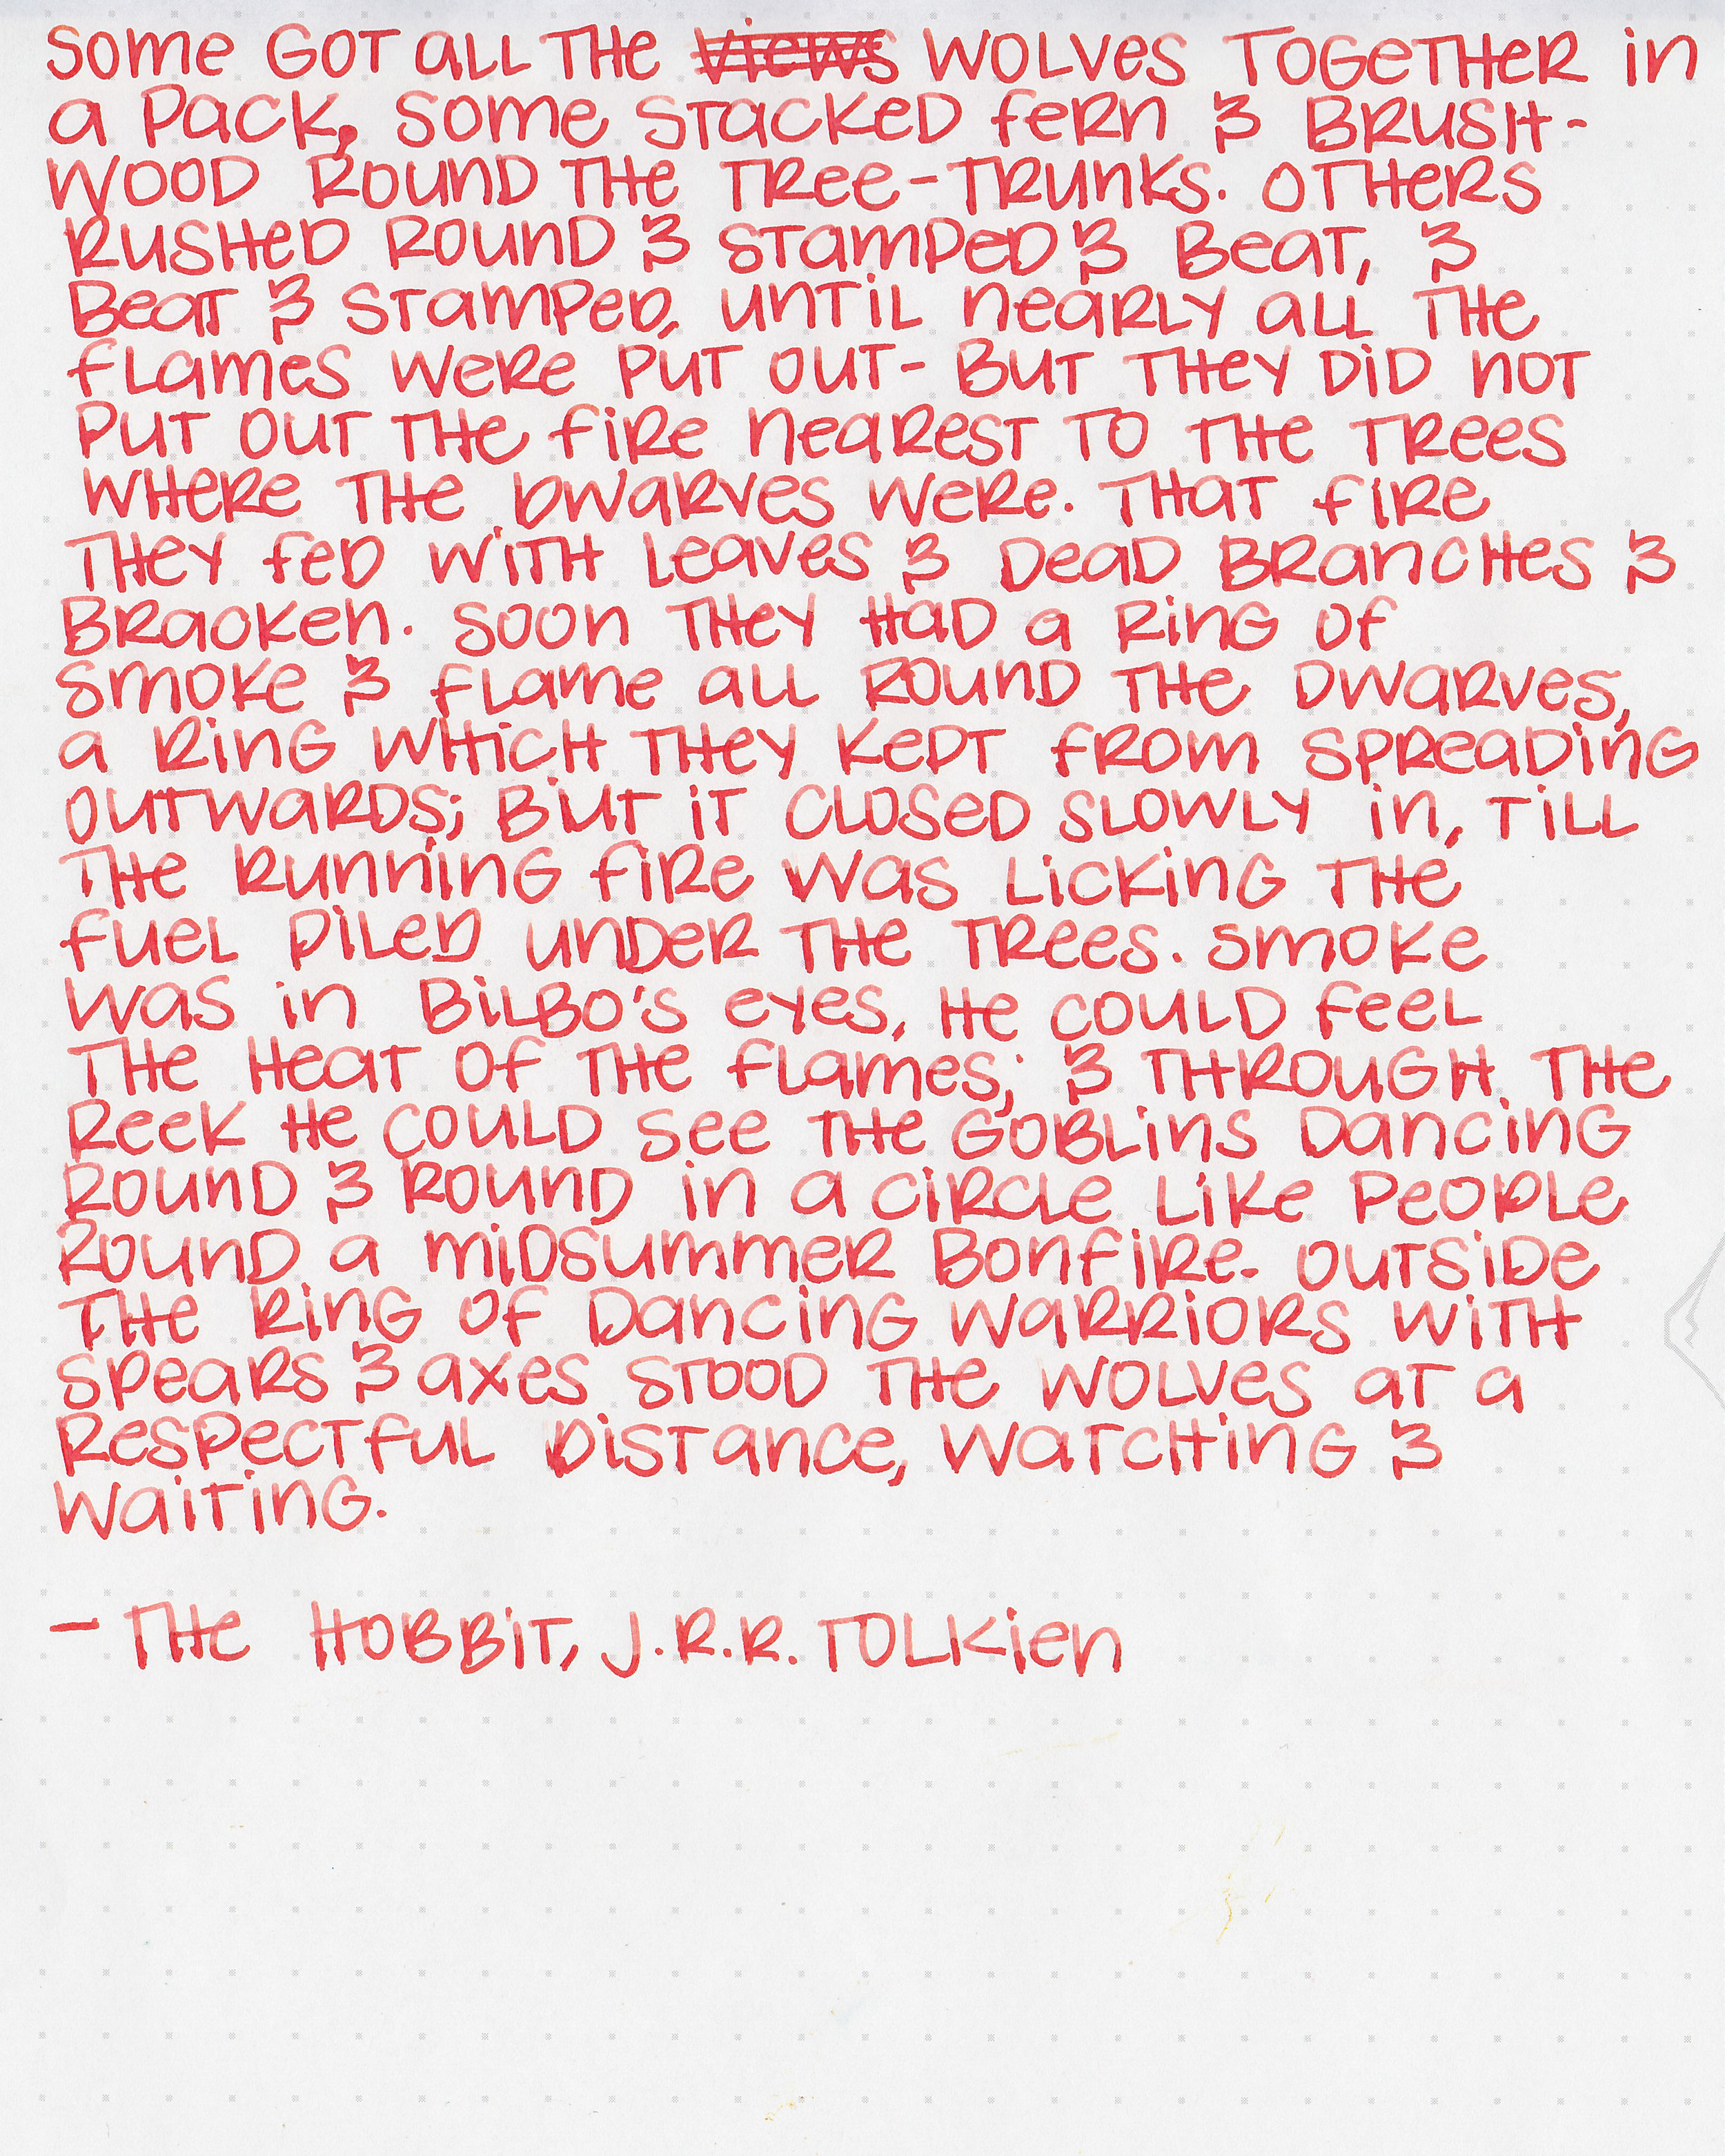 Some got all the ~~views~~ wolves together in
a pack. Some stacked fern & brush-
wood round the tree-trunks. Others
rushed round & stamped & beat, &
beat & stamped, until nearly all the
flames were put out- but they did not
put out the fire nearest to the trees
where the dwarves were. That fire
they fed with leaves & dead branches &
bracken. Soon they had a ring of
smoke & flame all round the dwarves,
a ring which they kept from spreading
outwards; but it closed slowly in, till
the running fire was licking the
fuel piled under the trees. Smoke
was in Bilbo's eyes, he could feel
the heat of the flames; & through the
reek he could see the goblins dancing
round & round in a circle like people
round a midsummer bonfire. Outside
the ring of dancing warriors with
spears & axes stood the wolves at a
respectful distance, watching &
waiting.
- The Hobbit, J.R.R. Tolkien